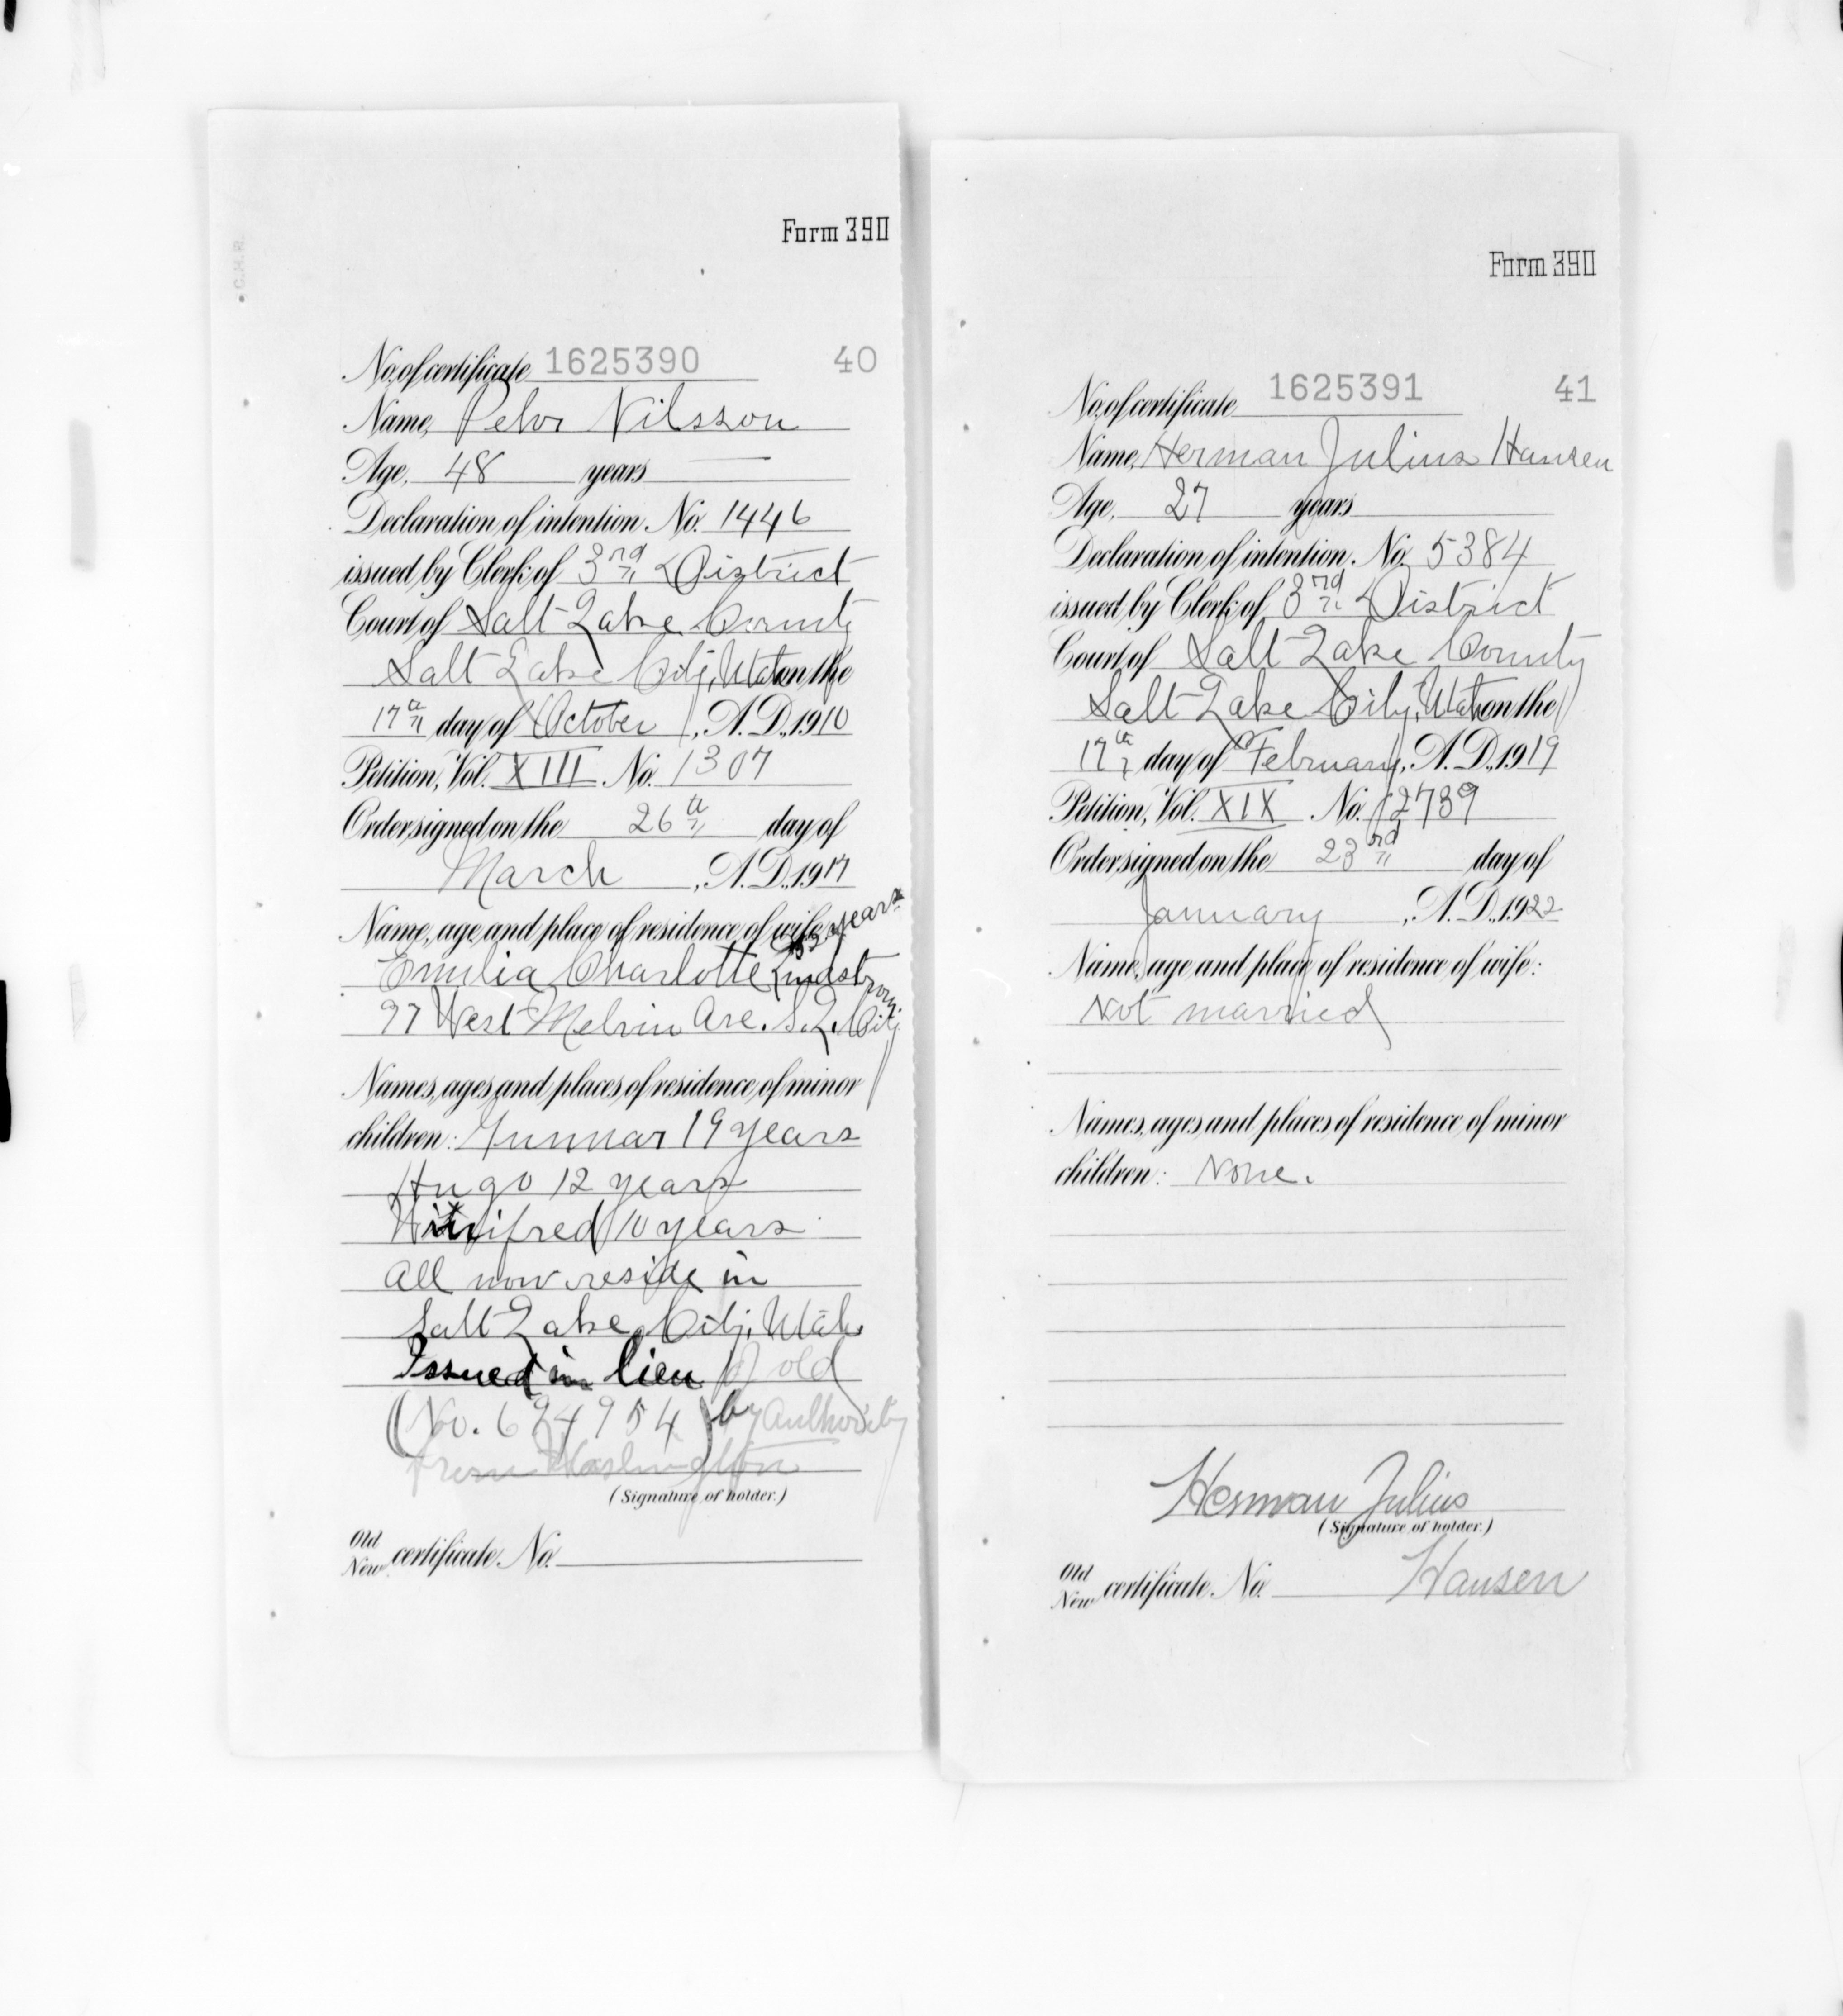 C.H.R.
Form 390
No. of certificate 1625390 40
Name, Pehr Nilsson
Age, 48 years
Declaration of intention No. 1446
issued by Clerk of 3rd District
Court of Salt Lake County
Salt Lake City, Utah on the
17th day of October, A.D. 1910
Petition, Vol. XIII No. 1307
Order signed on the 26th day of
March, A.D. 1917
Name, age and place of residence of wife: years
Emilia Charlotte Lindstrom
97 West Melvin Ave. S.L. City
Names, ages and places of residence of minor
children: Gunnar 19 years
Hugo 12 years
Winifred 10 years
All now reside in
Salt Lake City, Utah
Issued in lieu of old
(No. 694954) by Authority
from Washington
(Signature of holder.)
Old
New certificate No.
Form 390
No. of certificate 1625391 41
Name, Herman Julius Hansen
Age, 27 years
Declaration of intention No. 5384
issued by Clerk of 3rd District
Court of Salt Lake County
Salt Lake City, Utah on the
17th day of February, A.D. 1919
Petition, Vol. XIX No. 2739
Order signed on the 23rd day of
January, A.D. 1922
Name, age and place of residence of wife:
Not married
Names, ages and places of residence of minor
children: None.
Herman Julius
(Signature of holder.)
Hansen
Old
New certificate No.